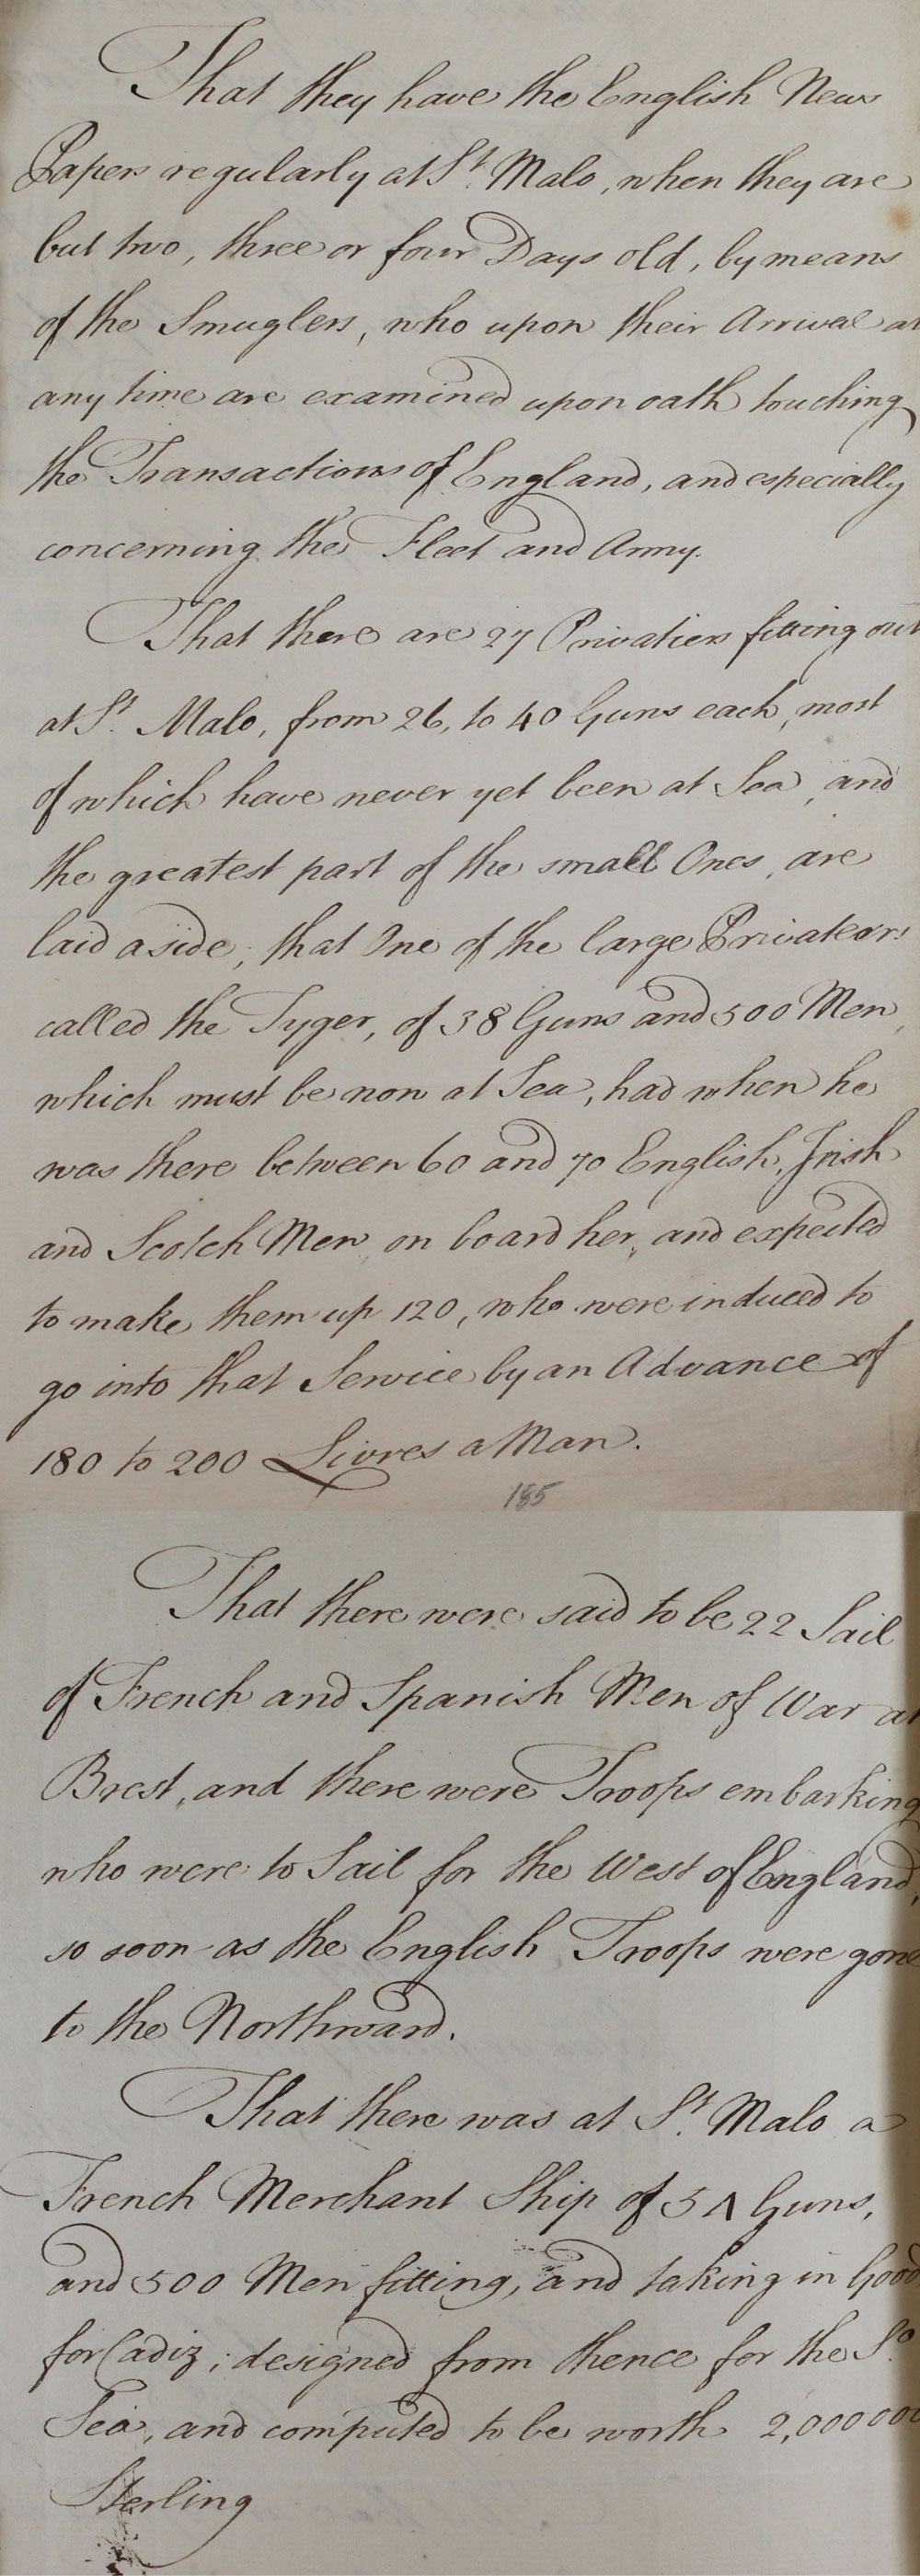 That they have the English News
Papers regularly at St. Malo, when they are
but two, three or four Days old, by means
of the Smuglers, who upon their Arrival at
any time are examined upon oath touching
the Transactions of England, and especially
concerning the Fleet and Army.
That there are 27 Privatiers fitting out
at St. Malo, from 26, to 40 Guns each, most
of which have never yet been at Sea, and
the greatest part of the small Ones, are
laid aside; that One of the large Privateers
called the Tyger, of 38 Guns and 500 Men,
which must be now at Sea, had when he
was there between 60 and 70 English, Irish
and Scotch Men on board her, and expected
to make them up 120, who were induced to
go into that Service by an Advance of
180 to 200 Livres a Man.
185
That there were said to be 22 Sail
of French and Spanish Men of War at
Brest, and there were Troops embarking
who were to Sail for the West of England,
so soon as the English Troops were gone
to the Northward.
That there was at St. Malo a
French Merchant Ship of 54 Guns,
and 500 Men fitting, and taking in Good
for Cadiz; designed from thence for the So.
Sea, and computed to be worth 2,000000
Sterling